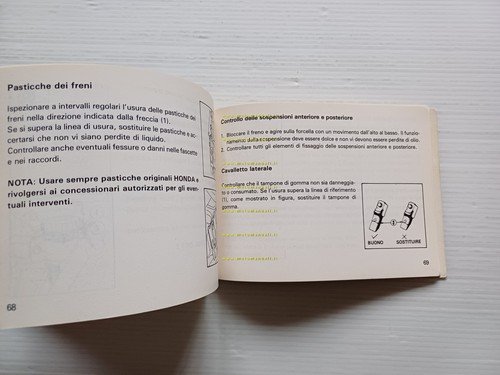 Pasticche dei freni
Ispezionare a intervalli regolari l'usura delle pasticche dei
freni nella direzione indicata dalla freccia (1).
Se si supera la linea di usura, sostituire le pasticche e ac-
certarsi che non vi siano perdite di liquido.
Controllare anche eventuali fessure o danni nelle fascette
e nei raccordi.
NOTA: Usare sempre pasticche originali HONDA e
rivolgersi ai concessionari autorizzati per gli even-
tuali interventi.
68
Controllo delle sospensioni anteriore e posteriore
1. Bloccare il freno e agire sulla forcella con un movimento dall'alto al basso. Il funzio-
namento della sospensione deve essere dolce e non vi devono essere perdite di olio.
2. Controllare tutti gli elementi di fissaggio delle sospensioni anteriore e posteriore.
Cavalletto laterale
Controllare che il tampone di gomma non sia danneggia-
to o consumato. Se l'usura supera la linea di riferimento
(1), come mostrato in figura, sostituire il tampone di
gomma.
1
BUONO
SOSTITUIRE
69
www.motomanuali.it